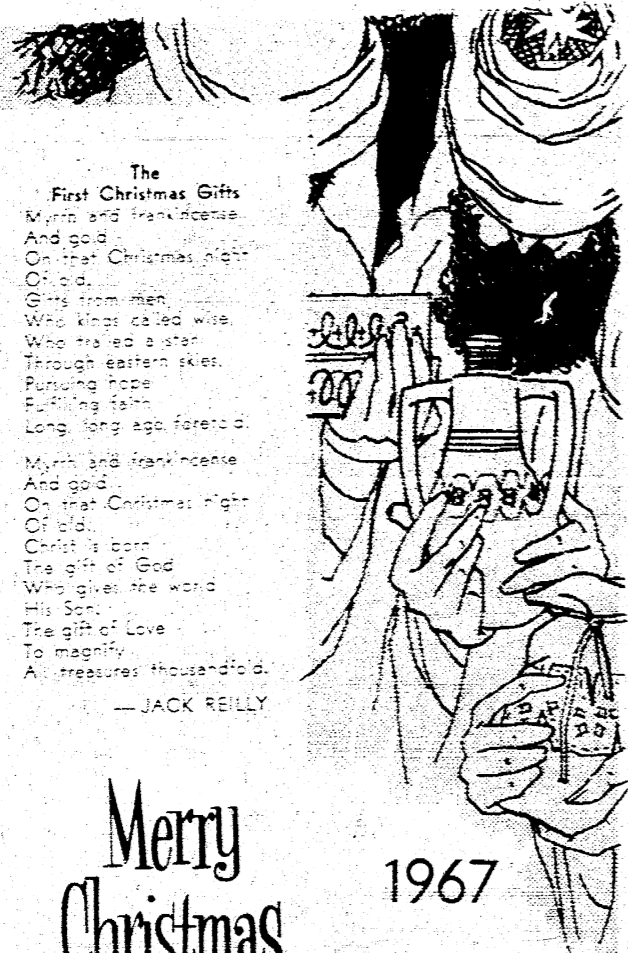 The
First Christmas Gifts
Myrrh and frankincense
And gold
On that Christmas night
Of old.
Gifts from men
Who kings called wise,
Who trailed a star
Through eastern skies,
Pursuing hope
Fulfilling faith
Long, long ago foretold.
Myrrh and frankincense
And gold
On that Christmas night
Of old.
Christ is born
The gift of God
Who gives the world
His Son:
The gift of Love
To magnify
All treasures thousandfold.
— JACK REILLY
Merry
Christmas
1967